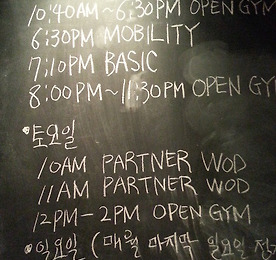 10:40AM~6:30PM OPEN GYM
6:30PM MOBILITY
7:10PM BASIC
8:00PM~11:30PM OPEN GYM
*토요일
10AM PARTNER WOD
11AM PARTNER WOD
12PM-2PM OPEN GYM
*일요일 (매월 마지막 일요일